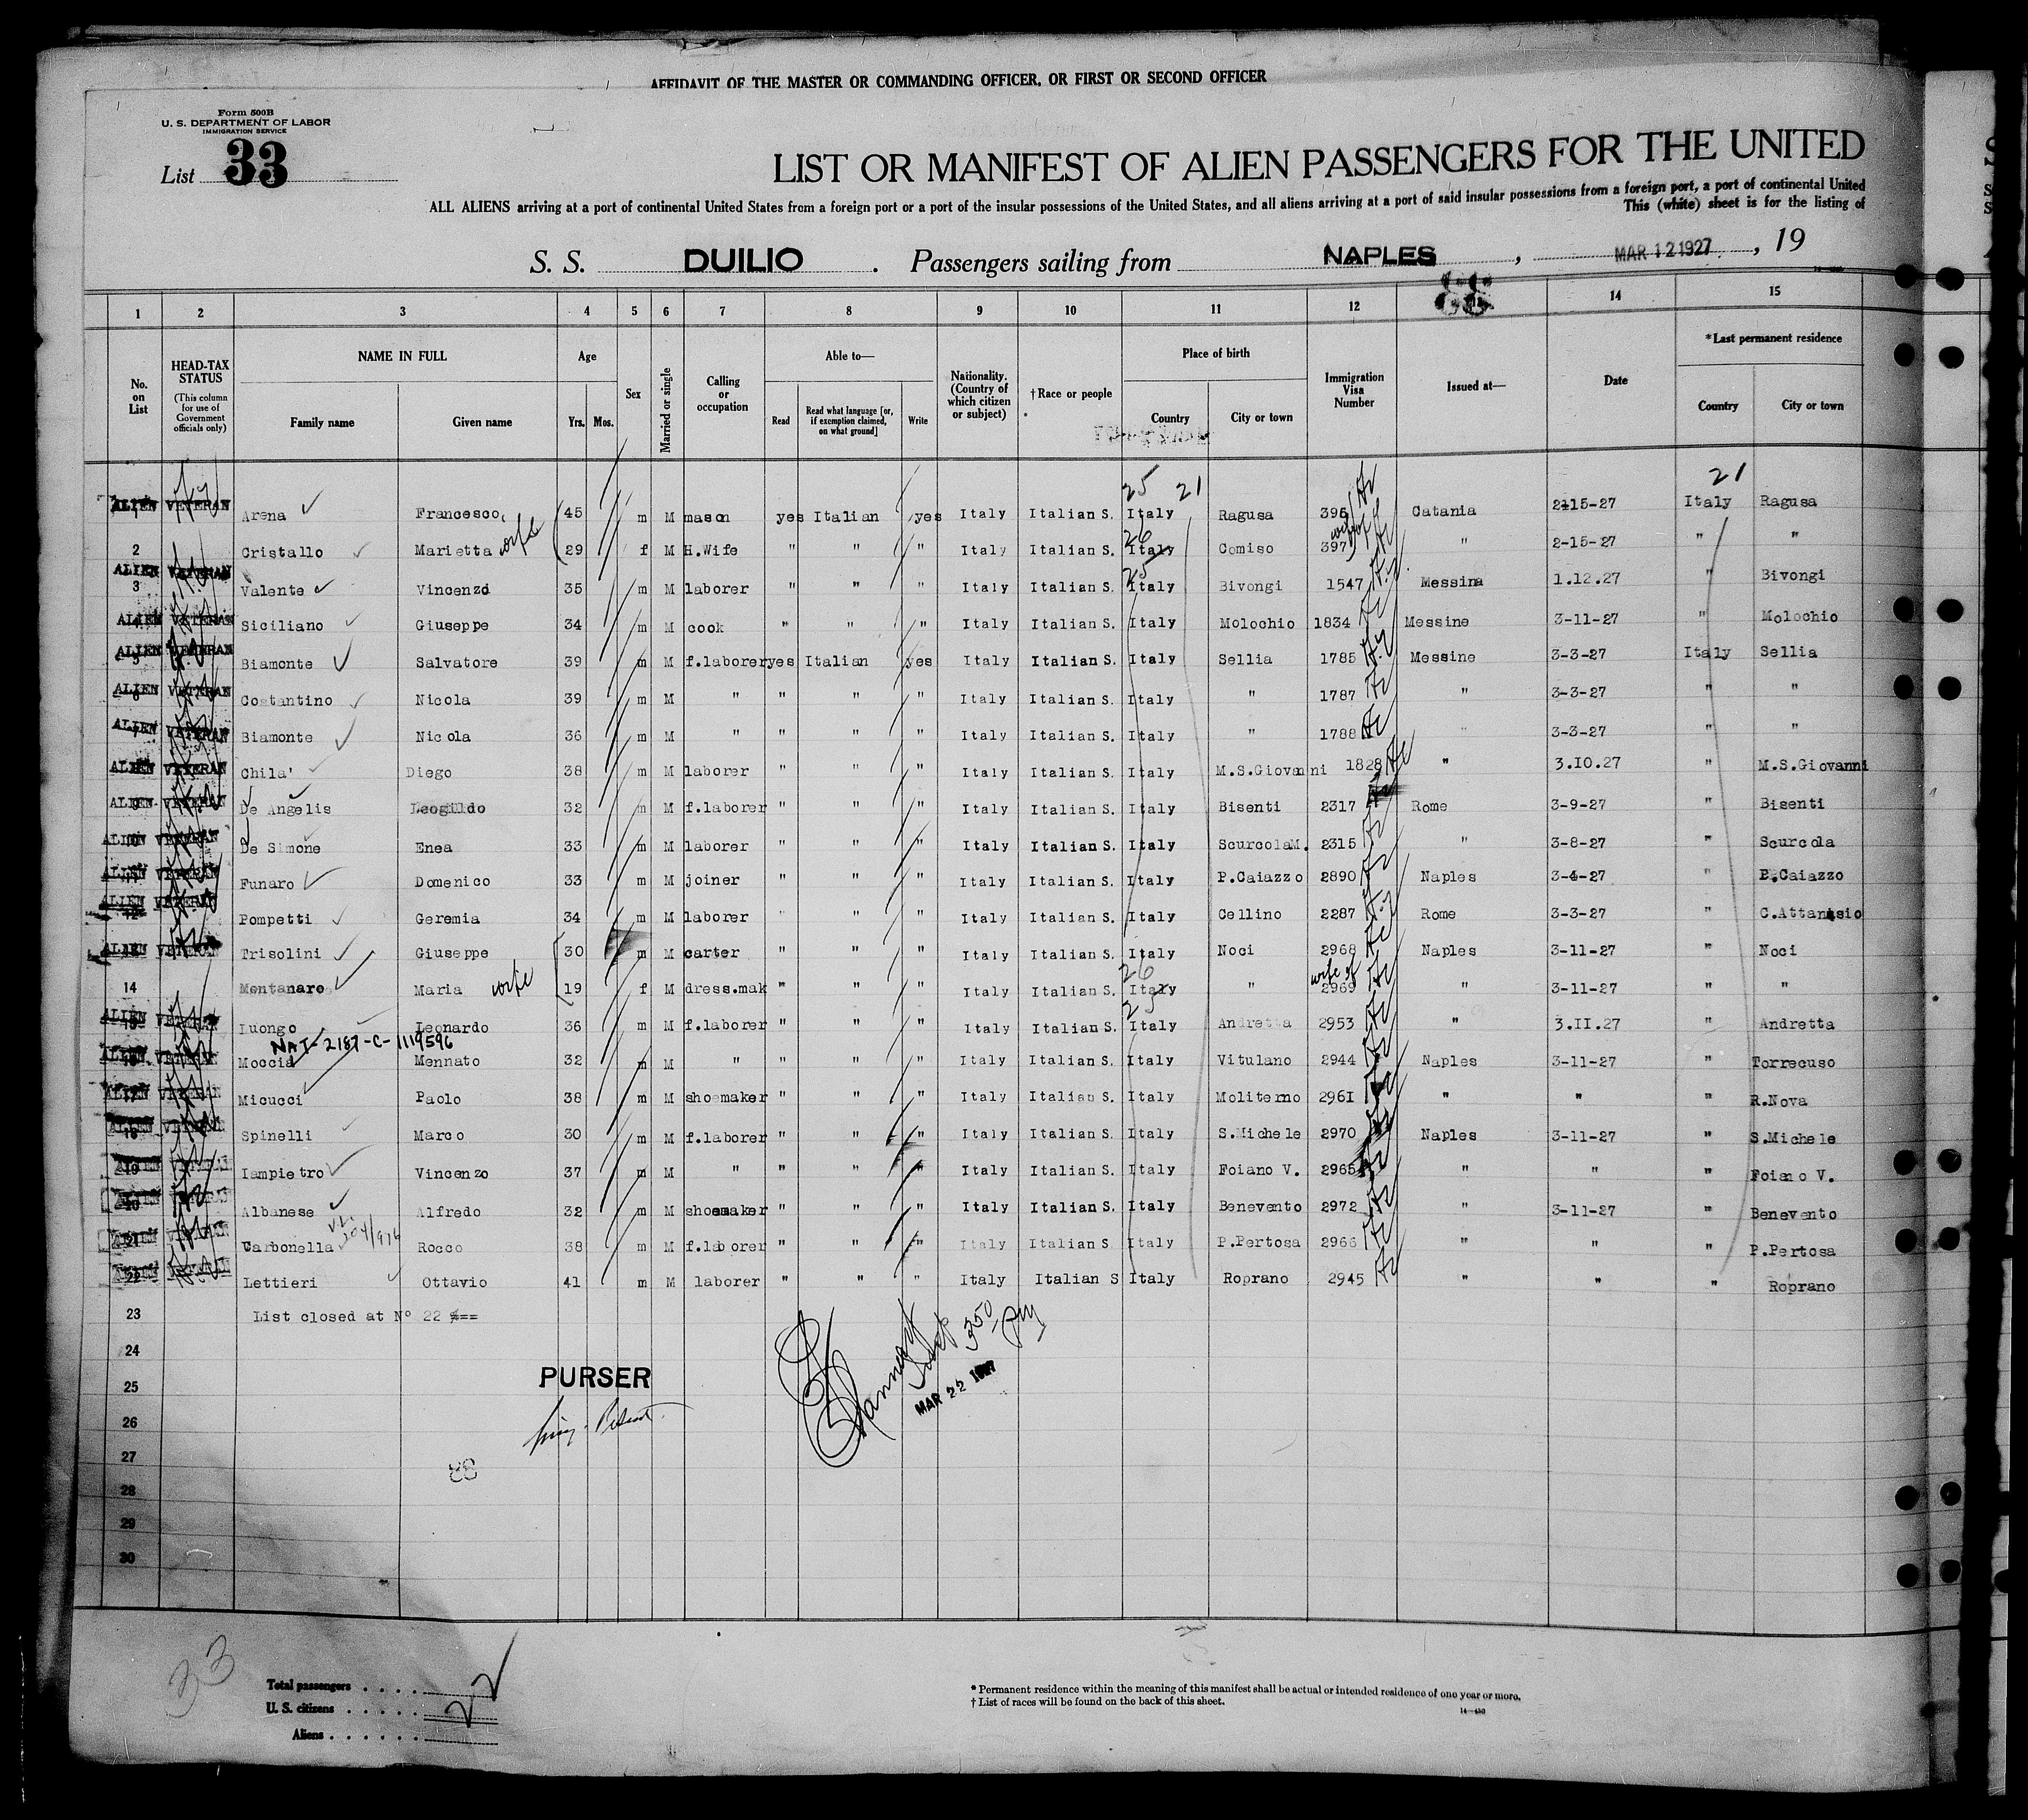 AFFIDAVIT OF THE MASTER OR COMMANDING OFFICER, OR FIRST OR SECOND OFFICER
Form 500B
U. S. DEPARTMENT OF LABOR
IMMIGRATION SERVICE
List 33
LIST OR MANIFEST OF ALIEN PASSENGERS FOR THE UNITED
ALL ALIENS arriving at a port of continental United States from a foreign port or a port of the insular possessions of the United States, and all aliens arriving at a port of said insular possessions from a foreign port, a port of continental United
This (white) sheet is for the listing of
S. S. DUILIO . Passengers sailing from NAPLES , MAR 12 1927 , 19
1 2 3 4 5 6 7 8 9 10 11 12 14 15
No. on List
HEAD-TAX STATUS (This column for use of Government officials only)
NAME IN FULL Family name Given name
Age Yrs. Mos.
Sex
Married or single
Calling or occupation
Able to— Read Read what language [or, if exemption claimed, on what ground] Write
Nationality. (Country of which citizen or subject)
† Race or people
Place of birth Country City or town
Immigration Visa Number
Issued at—
Date
*Last permanent residence Country City or town
25 21 21
ALIEN VETERAN Arena Francesco, 45 m M mason yes Italian yes Italy Italian S. Italy Ragusa 396 Catania 2-15-27 Italy Ragusa
2 Cristallo Marietta wife 29 f M H.Wife " " " Italy Italian S. 26 Italy Comiso wife of 397 " 2-15-27 " "
ALIEN VETERAN 3 Valente Vincenzo 35 m M laborer " " " Italy Italian S. 25 Italy Bivongi 1547 Messina 1.12.27 " Bivongi
ALIEN VETERAN 4 Siciliano Giuseppe 34 m M cook " " " Italy Italian S. Italy Molochio 1834 Messine 3-11-27 " Molochio
ALIEN VETERAN 5 Biamonte Salvatore 39 m M f.laborer yes Italian yes Italy Italian S. Italy Sellia 1785 Messine 3-3-27 Italy Sellia
ALIEN VETERAN 6 Costantino Nicola 39 m M " " " " Italy Italian S. Italy " 1787 " 3-3-27 " "
ALIEN VETERAN 7 Biamonte Nicola 36 m M " " " " Italy Italian S. Italy " 1788 " 3-3-27 " "
ALIEN VETERAN Chila' Diego 38 m M laborer " " " Italy Italian S. Italy M.S.Giovanni 1828 " 3.10.27 " M.S.Giovanni
ALIEN VETERAN 9 De Angelis Leogildo 32 m M f.laborer " " " Italy Italian S. Italy Bisenti 2317 Rome 3-9-27 " Bisenti
ALIEN VETERAN 10 De Simone Enea 33 m M laborer " " " Italy Italian S. Italy ScurcolaM. 2315 " 3-8-27 " Scurcola
ALIEN VETERAN 11 Funaro Domenico 33 m M joiner " " " Italy Italian S. Italy P.Caiazzo 2890 Naples 3-4-27 " P.Caiazzo
ALIEN VETERAN 12 Pompetti Geremia 34 m M laborer " " " Italy Italian S. Italy Cellino 2287 Rome 3-3-27 " C.Attanasio
ALIEN VETERAN Trisolini Giuseppe 30 m M carter " " " Italy Italian S. Italy Noci 2968 Naples 3-11-27 " Noci
14 Montanaro Maria wife 19 f M dress.mak " " " Italy Italian S. 26 Italy " wife of 2969 " 3-11-27 " "
ALIEN VETERAN 15 Luongo Leonardo 36 m M f.laborer " " " Italy Italian S. 25 Italy Andretta 2953 " 3.II.27 " Andretta
NAT-2187-C-1119596
ALIEN VETERAN 16 Moccia Mennato 32 m M " " " " Italy Italian S. Italy Vitulano 2944 Naples 3-11-27 " Torrecuso
ALIEN VETERAN 17 Micucci Paolo 38 m M shoemaker " " " Italy Italian S. Italy Moliterno 296I " " " R.Nova
ALIEN VETERAN 18 Spinelli Marco 30 m M f.laborer " " " Italy Italian S. Italy S.Michele 2970 Naples 3-11-27 " S.Michele
ALIEN VETERAN 19 Iampietro Vincenzo 37 m M " " " " Italy Italian S. Italy Foiano V. 2965 " " " Foiano V.
ALIEN VETERAN 20 Albanese Alfredo 32 m M shoemaker " " " Italy Italian S. Italy Benevento 2972 " 3-11-27 " Benevento
ALIEN VETERAN 21 Carbonella Rocco 38 m M f.laborer " " " Italy Italian S. Italy P.Pertosa 2966 " " " P.Pertosa
ALIEN VETERAN 22 Lettieri Ottavio 41 m M laborer " " " Italy Italian S Italy Roprano 2945 " " " Roprano
23 List closed at N° 22 ===
24
25 PURSER
MAR 22 1927
26
27
28
29
30
33
Total passengers . . . . . 22
U. S. citizens . . . . .
Aliens . . . . . .
* Permanent residence within the meaning of this manifest shall be actual or intended residence of one year or more.
† List of races will be found on the back of this sheet.
14—430